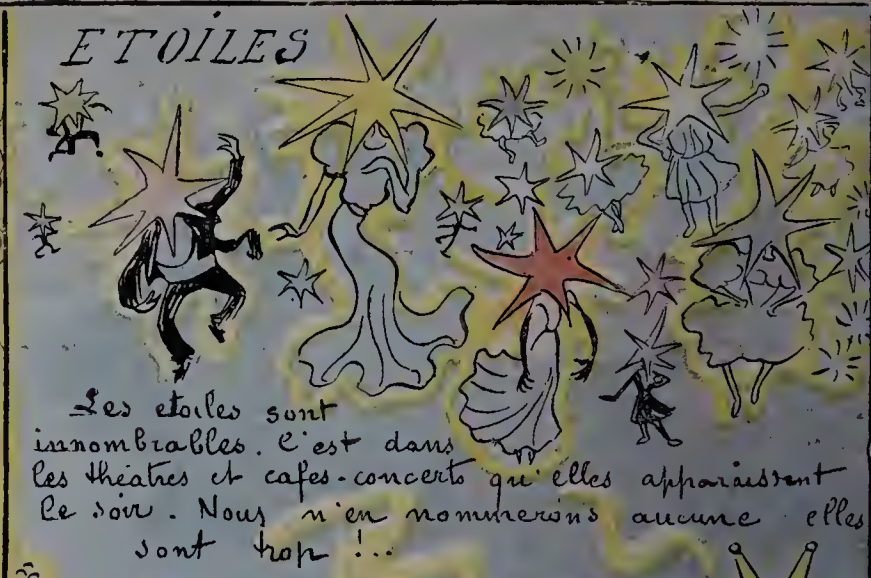 ETOILES
Les etoiles sont
innombrables. C'est dans
les théatres et cafes-concerts qu'elles apparaissent
le soir. Nous n'en nommerons aucune elles
sont trop !...